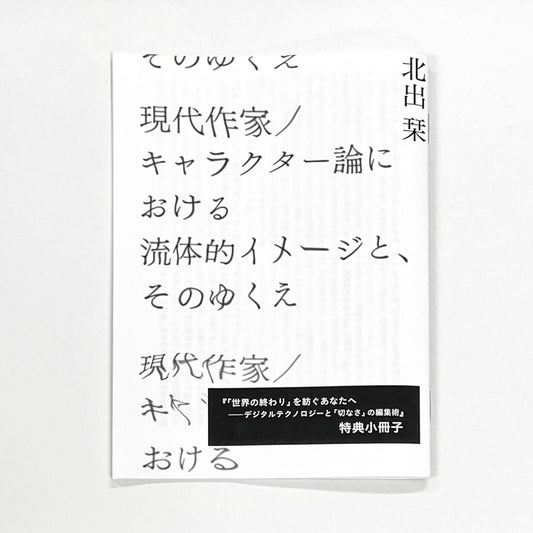 そのゆくえ
北出 栞
現代作家／
キャラクター論に
おける
流体的イメージと、
そのゆくえ
現代作家／
キャ
『「世界の終わり」を紡ぐあなたへ
──デジタルテクノロジーと「切なさ」の編集術』
特典小冊子
おける